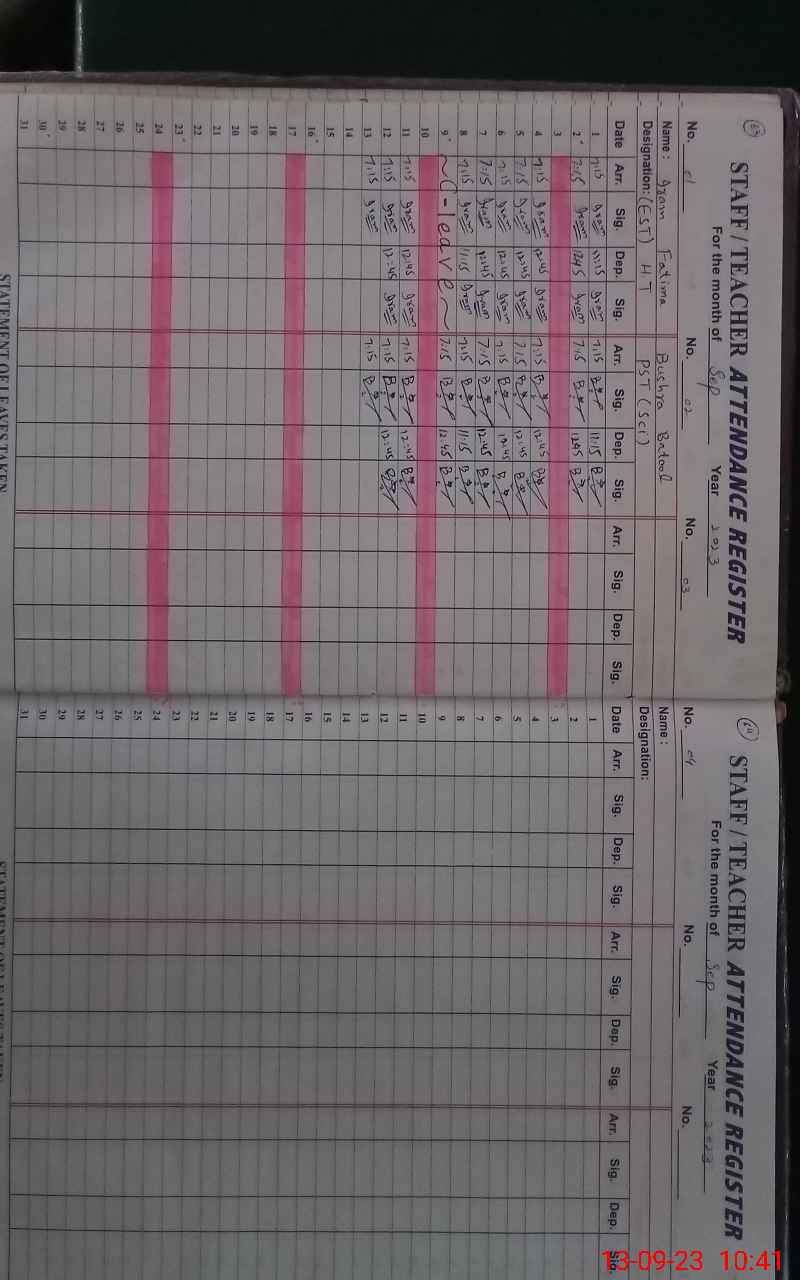 63
STAFF / TEACHER ATTENDANCE REGISTER
For the month of Sep Year 2023
No. 01 No. 02 No. 03
Name: Iram Fatima Bushra Batool
Designation: (EST) HT PST (Sci)
Date Arr. Sig. Dep. Sig. Arr. Sig. Dep. Sig. Arr. Sig. Dep. Sig.
1 7:15 Iram 11:15 Iram 7:15 11:15
2 7:15 Iram 1245 Iram 7:15 1245
3
4 7:15 Iram 12:45 Iram 7:15 12:45
5 7:15 Iram 12:45 Iram 7:15 12:45
6 7:15 Iram 12:45 Iram 7:15 12:45
7 7:15 Iram 12:45 Iram 7:15 12:45
8 7:15 Iram 11:15 Iram 7:15 11:15
9 ~C-leave~ 7:15 12:45
10
11 7:15 Iram 12:45 Iram 7:15 12:45
12 7:15 Iram 12:45 Iram 7:15 12:45
13 7:15 Iram 7:15
14
15
16
17
18
19
20
21
22
23
24
25
26
27
28
29
30
31
STATEMENT OF LEAVES TAKEN
64
STAFF / TEACHER ATTENDANCE REGISTER
For the month of Sep Year 2023
No. 04 No. No.
Name:
Designation:
Date Arr. Sig. Dep. Sig. Arr. Sig. Dep. Sig. Arr. Sig. Dep. Sig.
1
2
3
4
5
6
7
8
9
10
11
12
13
14
15
16
17
18
19
20
21
22
23
24
25
26
27
28
29
30
31
STATEMENT OF LEAVES TAKEN
13-09-23 10:41